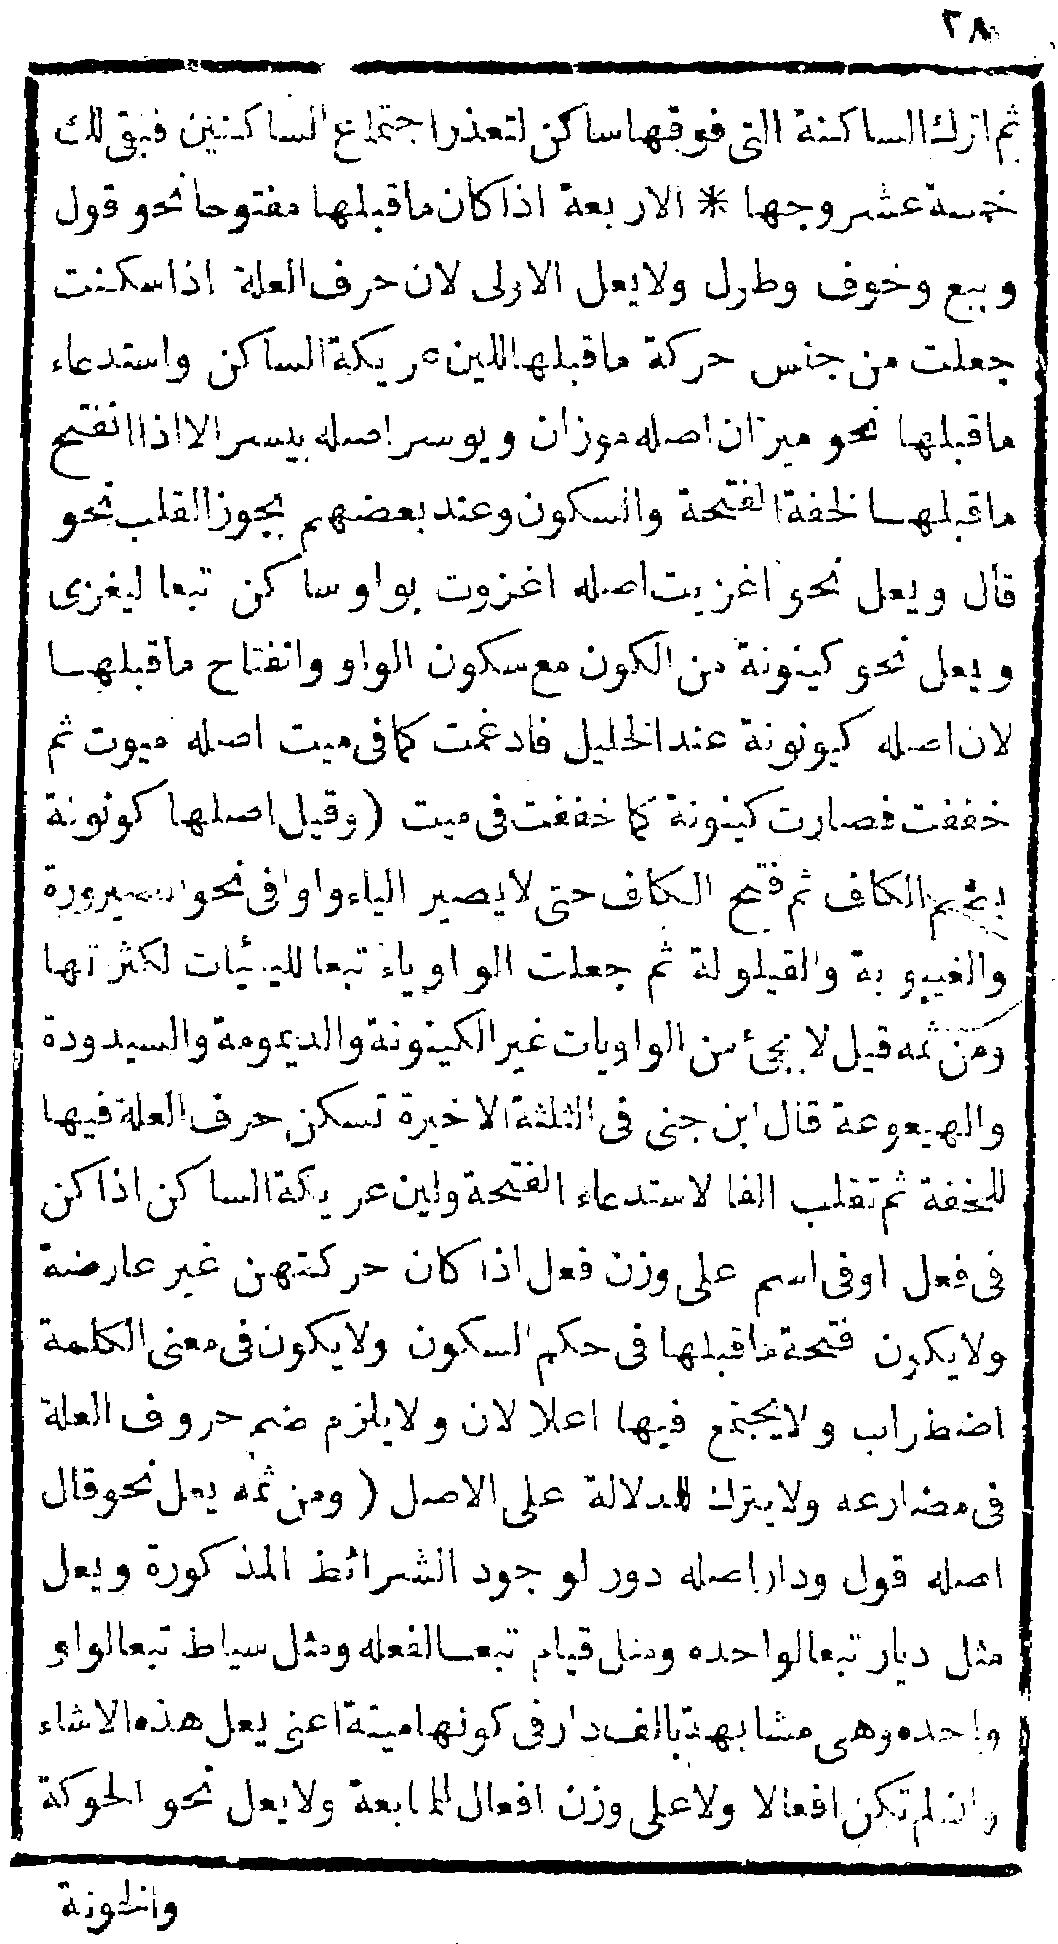 ٢٨
ثم اترك الساكنة التى فوقها ساكن لتعذر اجتماع الساكنين فبقى لك
خمسة عشر وجها * الاربعة اذا كان ماقبلها مفتوحا نحو قول
وبيع وخوف وطول ولا يعل الاولى لان حرف العلة اذا سكنت
جعلت من جنس حركة ماقبلها للين عريكة الساكن واستدعاء
ماقبلها نحو ميزان اصله موزان ويوسر اصله ييسر الا اذا انفتح
ماقبلها لخفة الفتحة والسكون وعند بعضهم يجوز القلب نحو
قال ويعل نحو اغزيت اصله اغزوت بواو ساكن تبعا ليغزى
ويعل نحو كينونة من الكون مع سكون الواو وانفتاح ماقبلها
لان اصله كيونونة عند الخليل فادغمت كما فى ميت اصله ميوت ثم
خففت فصارت كينونة كما خففت فى ميت (وقيل اصلها كونونة
بضم الكاف ثم فتح الكاف حتى لا يصير الياء واوا فى نحو الصيرورة
والغيبوبة والقيلولة ثم جعلت الواو ياء تبعا لليائيات لكثرتها
ومن ثمه قيل لا يجئ من الواويات غير الكينونة والديمومة والسيدودة
والهيعوعة قال ابن جنى فى الثلثة الاخيرة تسكن حرف العلة فيها
للخفة ثم تقلب الفا لاستدعاء الفتحة ولين عريكة الساكن اذا كن
فى فعل او فى اسم على وزن فعل اذا كان حركتهن غير عارضة
ولا يكون فتحة ماقبلها فى حكم السكون ولا يكون فى معنى الكلمة
اضطراب ولا يجتمع فيها اعلالان ولا يلزم ضم حروف العلة
فى مضارعه ولا يترك للدلالة على الاصل (ومن ثمه يعل نحو قال
اصله قول ودار اصله دور لوجود الشرائط المذكورة ويعل
مثل ديار تبعا لواحده ومثل قيام تبعا لفعله ومثل سياط تبعا لواو
واحده وهى مشابهة بالف دار فى كونها ميتة اعنى يعل هذه الاشاء
وان لم تكن افعالا ولا على وزن افعال للمتابعة ولا يعل نحو الحوكة
والخونة